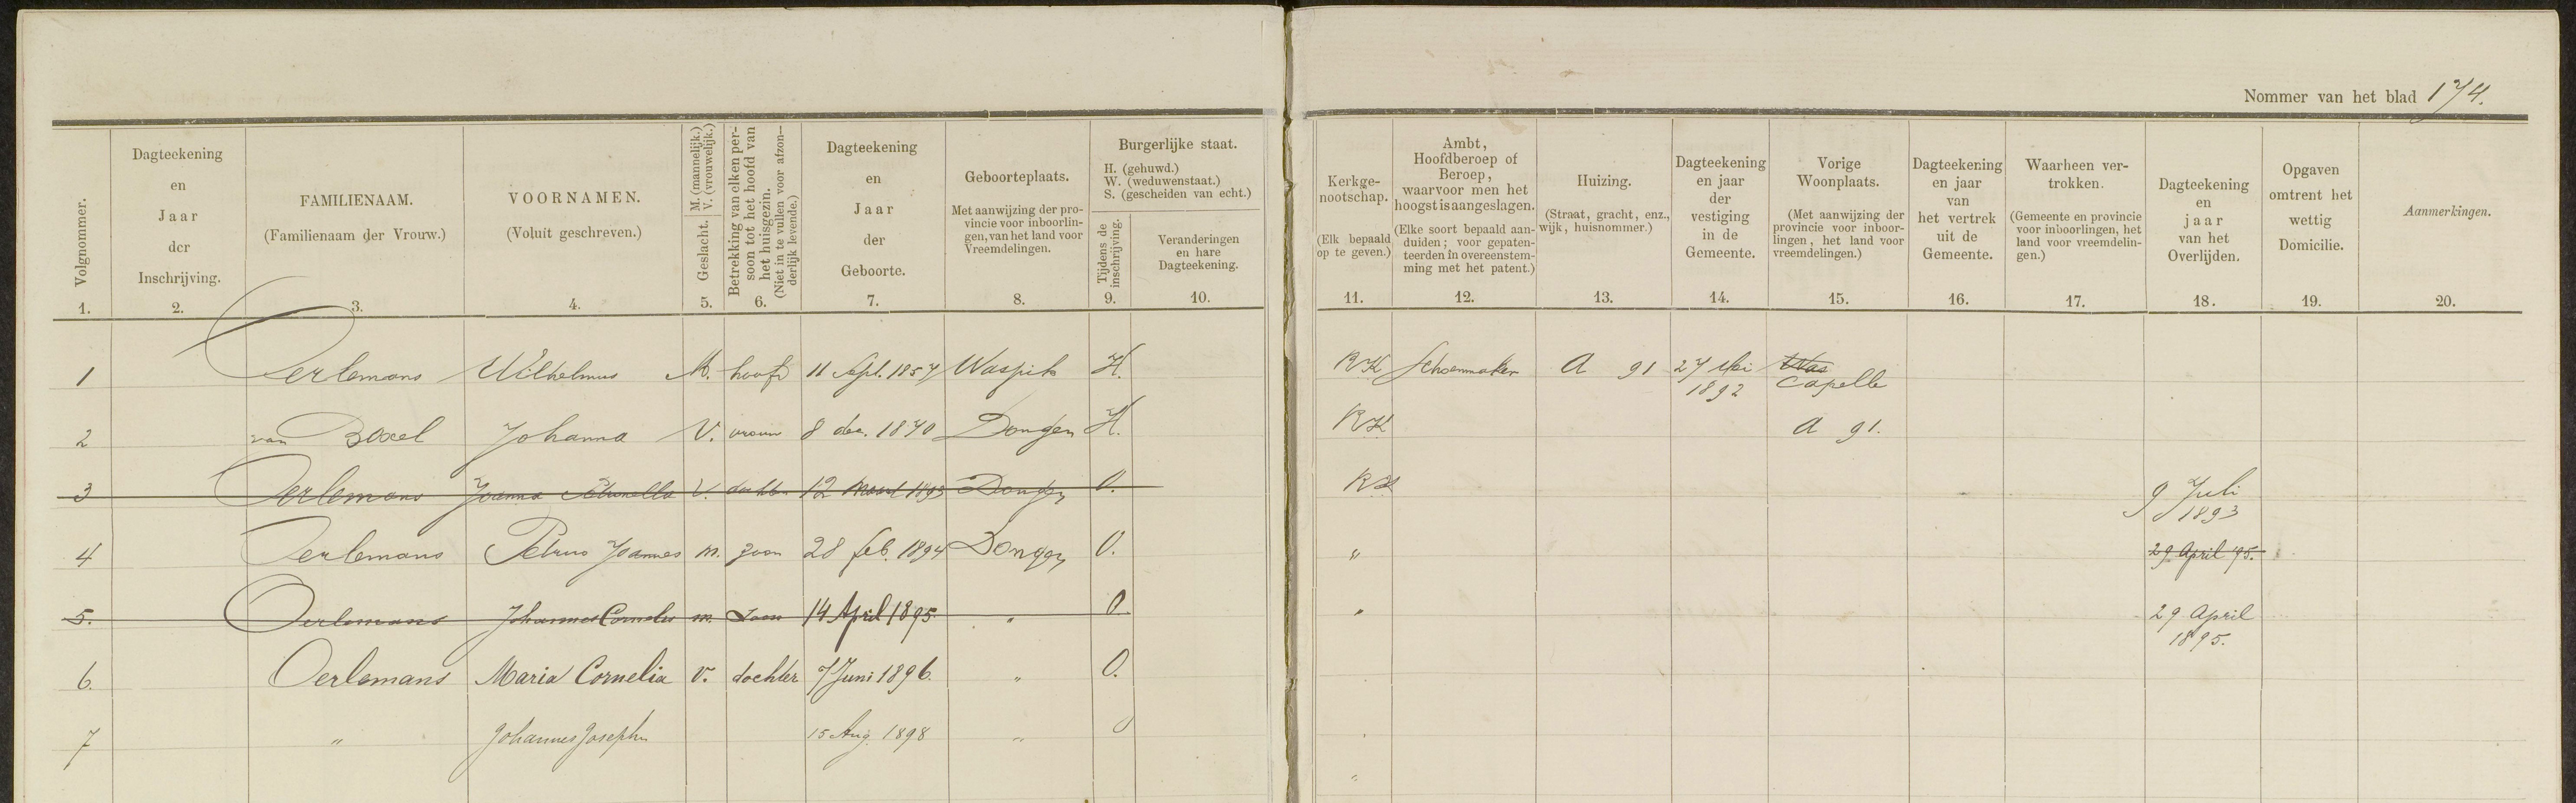 Nommer van het blad 174.
Volgnommer. 1.
Dagteekening en Jaar der Inschrijving. 2.
FAMILIENAAM. (Familienaam der Vrouw.) 3.
VOORNAMEN. (Voluit geschreven.) 4.
Geslacht. M. (mannelijk.) V. (vrouwelijk.) 5.
Betrekking van elken persoon tot het hoofd van het huisgezin. (Niet in te vullen voor afzonderlijk levende.) 6.
Dagteekening en Jaar der Geboorte. 7.
Geboorteplaats. Met aanwijzing der provincie voor inboorlingen, van het land voor Vreemdelingen. 8.
Burgerlijke staat. H. (gehuwd.) W. (weduwenstaat.) S. (gescheiden van echt.)
Tijdens de inschrijving. 9.
Veranderingen en hare Dagteekening. 10.
Kerkgenootschap. (Elk bepaald op te geven.) 11.
Ambt, Hoofdberoep of Beroep, waarvoor men het hoogst is aangeslagen. (Elke soort bepaald aanduiden; voor gepatenteerden in overeenstemming met het patent.) 12.
Huizing. (Straat, gracht, enz., wijk, huisnommer.) 13.
Dagteekening en jaar der vestiging in de Gemeente. 14.
Vorige Woonplaats. (Met aanwijzing der provincie voor inboorlingen, het land voor vreemdelingen.) 15.
Dagteekening en jaar van het vertrek uit de Gemeente. 16.
Waarheen vertrokken. (Gemeente en provincie voor inboorlingen, het land voor vreemdelingen.) 17.
Dagteekening en jaar van het Overlijden. 18.
Opgaven omtrent het wettig Domicilie. 19.
Aanmerkingen. 20.
1 Oerlemans Wilhelmus M. hoofd 11 Sept. 1857 Waspik H. RK Schoenmaker A 91 27 Mei 1892 Was Capelle
2 van Boxel Johanna V. vrouw 8 dec. 1870 Dongen H. RK A 91.
3 Oerlemans Joanna Petronella V. dochter 12 Maart 1893 Dongen O. RK 9 Juli 1893
4 Oerlemans Petrus Joannes m. zoon 28 feb. 1894 Dongen O. " 29 April '95.
5. Oerlemans Johannes Cornelis m. Zoon 14 April 1895 " O " 29 April 1895.
6. Oerlemans Maria Cornelia v. dochter 7 Juni 1896. " O.
7 " Johannes Joseph 15 Aug. 1898 " O
"